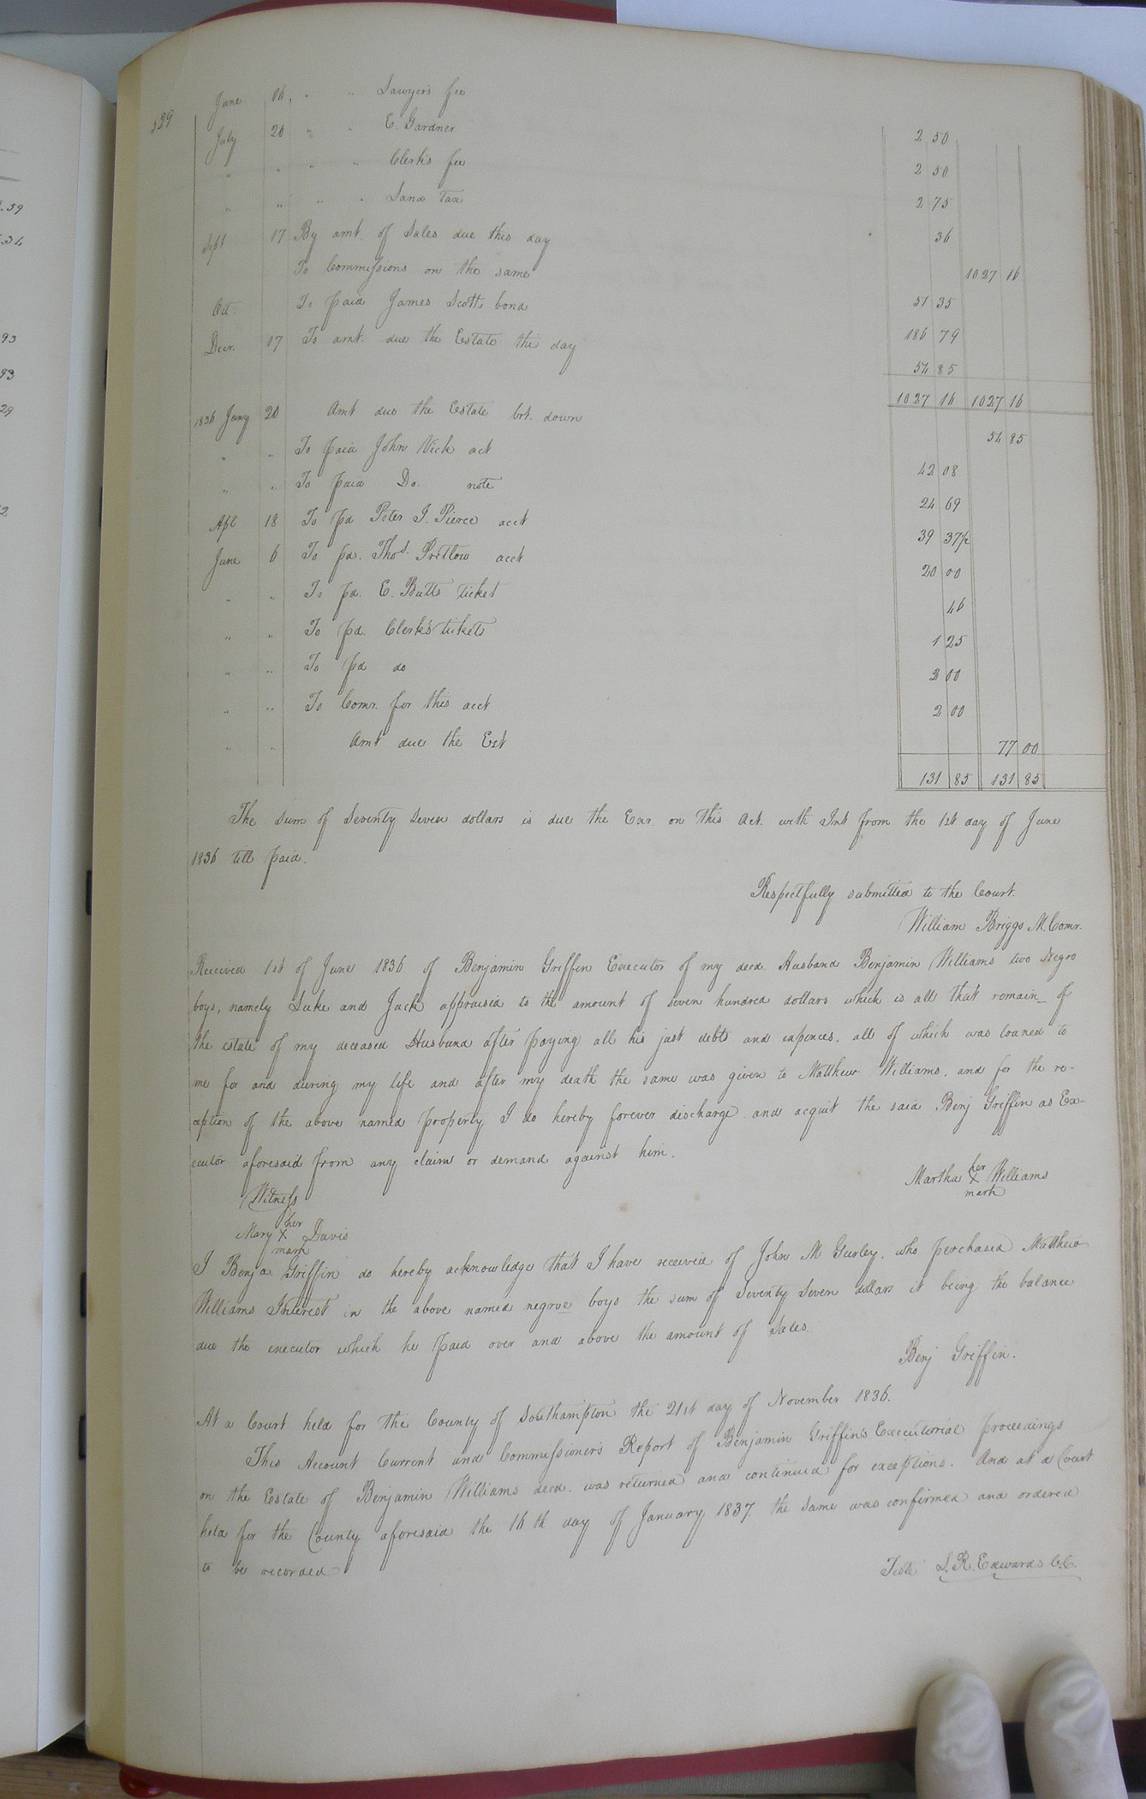 529
June 16 " " Lawyers fee 2 50
July 20 " " E. Gardner 2 50
" " " " Clerks fee 2 75
" " " " Land Tax 36
Sept 17 By amt. of Sales due this day 1027 16
To Commissions on the same 51 35
Oct To paid James Scotts bond 186 79
Decr. 17 To amt. due the Estate this day 54 85
1027 16 1027 16
1836 Jany 20 Amt due the Estate brt. down 54 85
" " To paid John Vick act 42 08
" " To paid Do. note 24 69
Apl 18 To pd Peter J. Pierce acct 39 37½
June 6 To pd. Thos. Pretlow acct 20 00
" " To pd. E. Butts ticket 46
" " To pd. Clerk's tickets 1 25
" " To pd do 2 00
" " To Comr. for this acct 2 00
" " Amt due the Est 77 00
131 85 131 85
The Sum of Seventy Seven dollars is due the Exr. on this Act. with Int from the 1st day of June
1836 till paid.
Respectfully submitted to the Court.
William Briggs M. Comr.
Received 1st of June 1836 of Benjamin Griffin Executor of my decd. Husband Benjamin Williams two Negro
boys, namely Luke and Jack appraised to the amount of seven hundred dollars which is all that remain_ of
the estate of my deceased Husband after paying all his just debts and expences. all of which was loaned to
me for and during my life and after my death the same was given to Matthew Williams. and for the re-
ception of the above named property I do hereby forever discharge and acquit the said Benj Griffin as Ex-
ecutor aforesaid from any claim or demand against him.
Martha her X mark Williams
Witness
Mary her X mark Davis
I Benja Griffin do hereby acknowledge that I have received of John M Gurley. who perchased Matthew
Williams Interest in the above named negroe boys the sum of Seventy Seven dollars it being the balance
due the executor which he paid over and above the amount of sales.
Benj Griffin.
At a Court held for the County of Southampton the 21st day of November 1836.
This Account Current and Commissioners Report of Benjamin Griffin's Executorial proceedings
on the Estate of Benjamin Williams decd. was returned and continued for exceptions. And at a Court
held for the County aforesaid the 16th day of January 1837 the same was confirmed and ordered
to be recorded
Teste L. R. Edwards C.C.